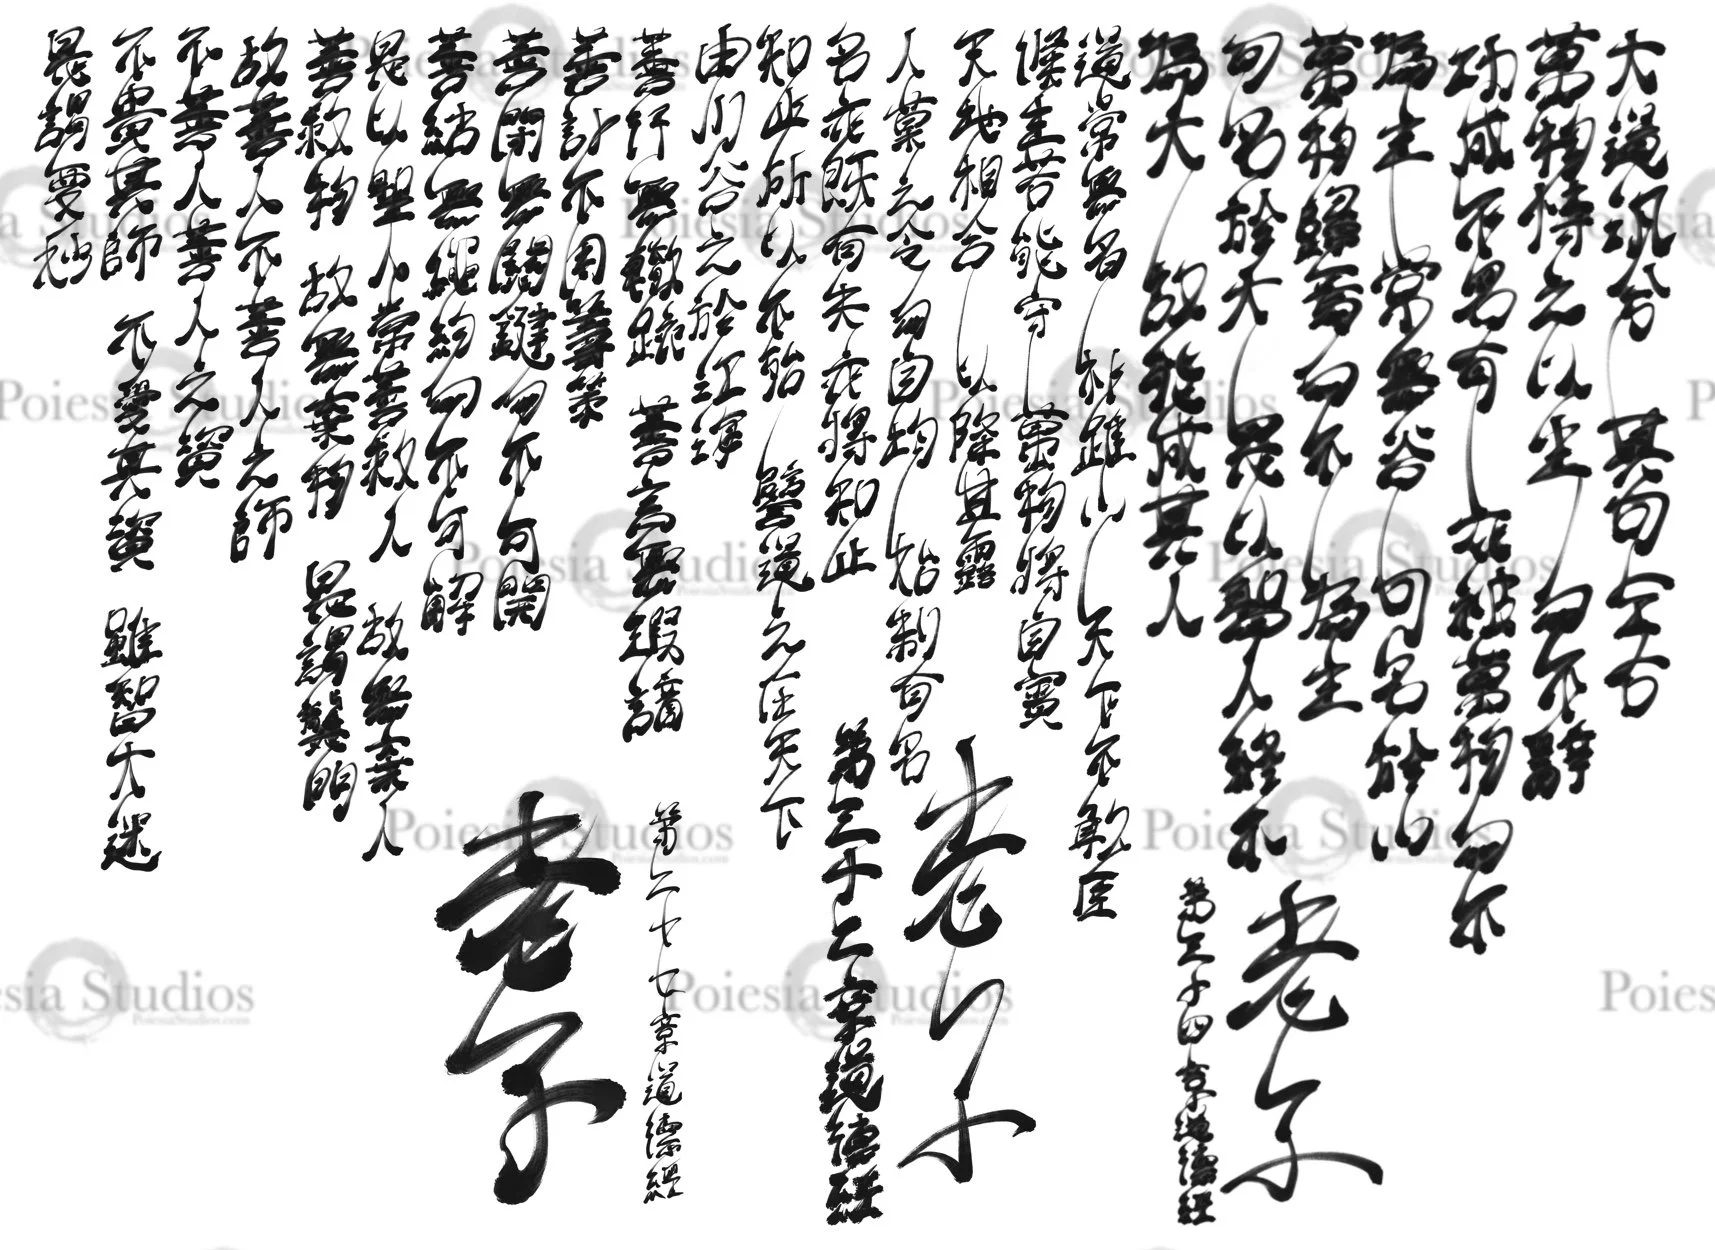 大道汎兮 其可左右
萬物恃之以生 而不辭
功成不名有 衣被萬物而不
為主 常無欲 可名於小
萬物歸焉而不 為主
可名於大 是以聖人終不
為大 故能成其大
第三十四章道德經
老子
道常無名 樸雖小 天下不敢臣
侯王若能守 萬物將自賓
天地相合 以降甘露
人莫之令而自均 始制有名
名亦既有夫亦將知止
知止所以不殆 譬道之在天下
由川谷之於江海
老子
第三十二章道德經
善行無轍跡 善言無瑕讁
善計不用籌策
善閉無關鍵而不可開
善結無繩約而不可解
是以聖人常善救人 故無棄人
善救物 故無棄物 是謂襲明
故善人不善人之師
不善人善人之資
不貴其師 不愛其資 雖智大迷
是謂要妙
第二十七章道德經
老子
Poiesia Studios
PoiesiaStudios.com